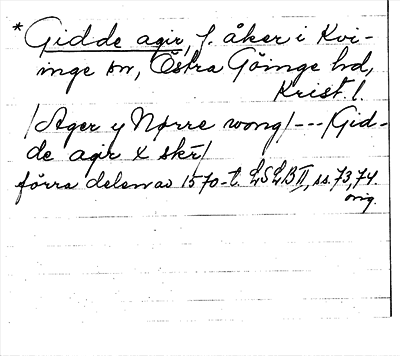 * Gidde agir, f. åker i Kvi-
inge sn, Östra Göinge hd,
Krist. l.
/Ager y Nørre wong/---/Gid-
de agir x skr/
förra delen av 1570-t. LSLB II, ss. 73, 74.
orig.